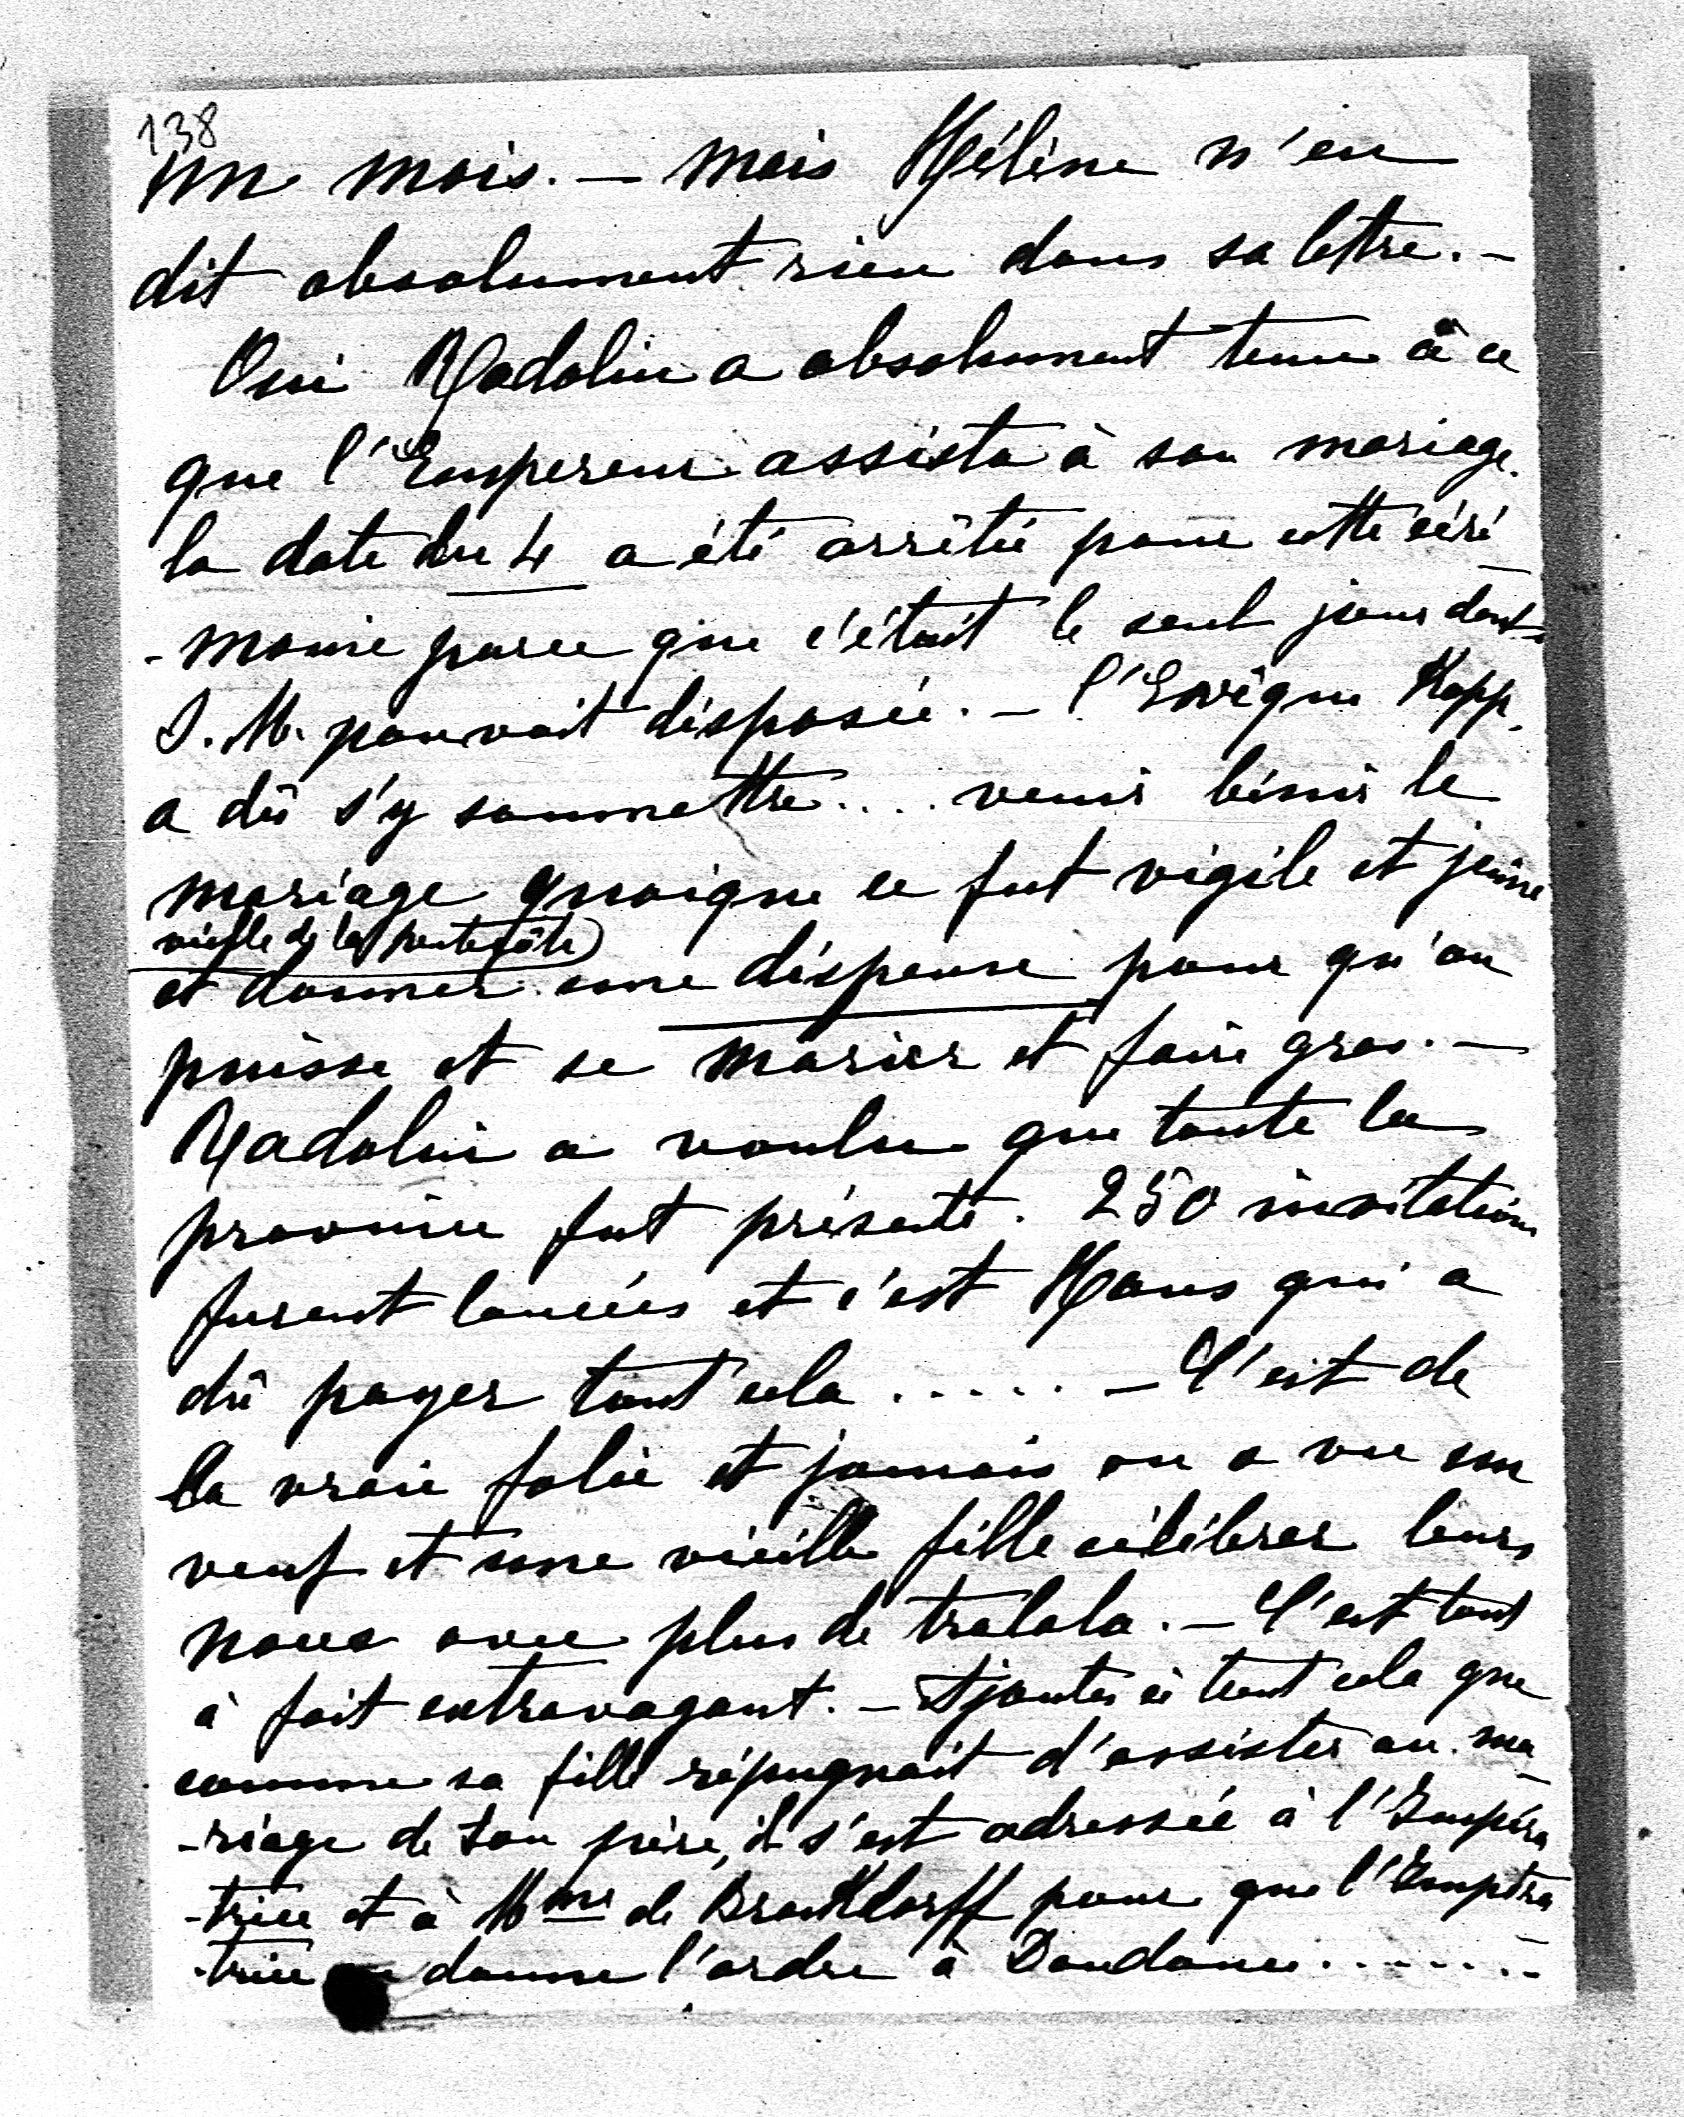 138
un mois. — Mais Hélène n'en
dit absolument rien dans sa lettre. —
Oui Radolin a absolument tenu à ce
que l'Empereur assista à son mariage.
la date du 4 a été arrêtée pour cette céré
-monie parce que c'était le seul jour dont
S. M. pouvait disposée. — l'Evêque Kopp
a dû s'y soumettre .... venir bénir le
mariage quoique ce fut vigile et jeûne
vieille de la pentecôte)
et donner une dispense pour qu'on
puisse et se marier et faire gras. —
Radolin a voulu que toute la
province fut présente. 250 invitations
furent lancées et c'est Hans qui a
dû payer tout cela ...... — C'est de
la vraie folie et jamais on a vu un
veuf et une vieille fille célébrer leurs
noces avec plus de tralala. — C'est tout
à fait extravagant. — Ajoutez à tout cela que
comme sa fille répugnait d'assister au ma
-riage de son père, il s'est adressée à l'Impéra
-trice et à Mme de Brockdorff pour que l'Impéra
-trice donne l'ordre à Doudonei ........